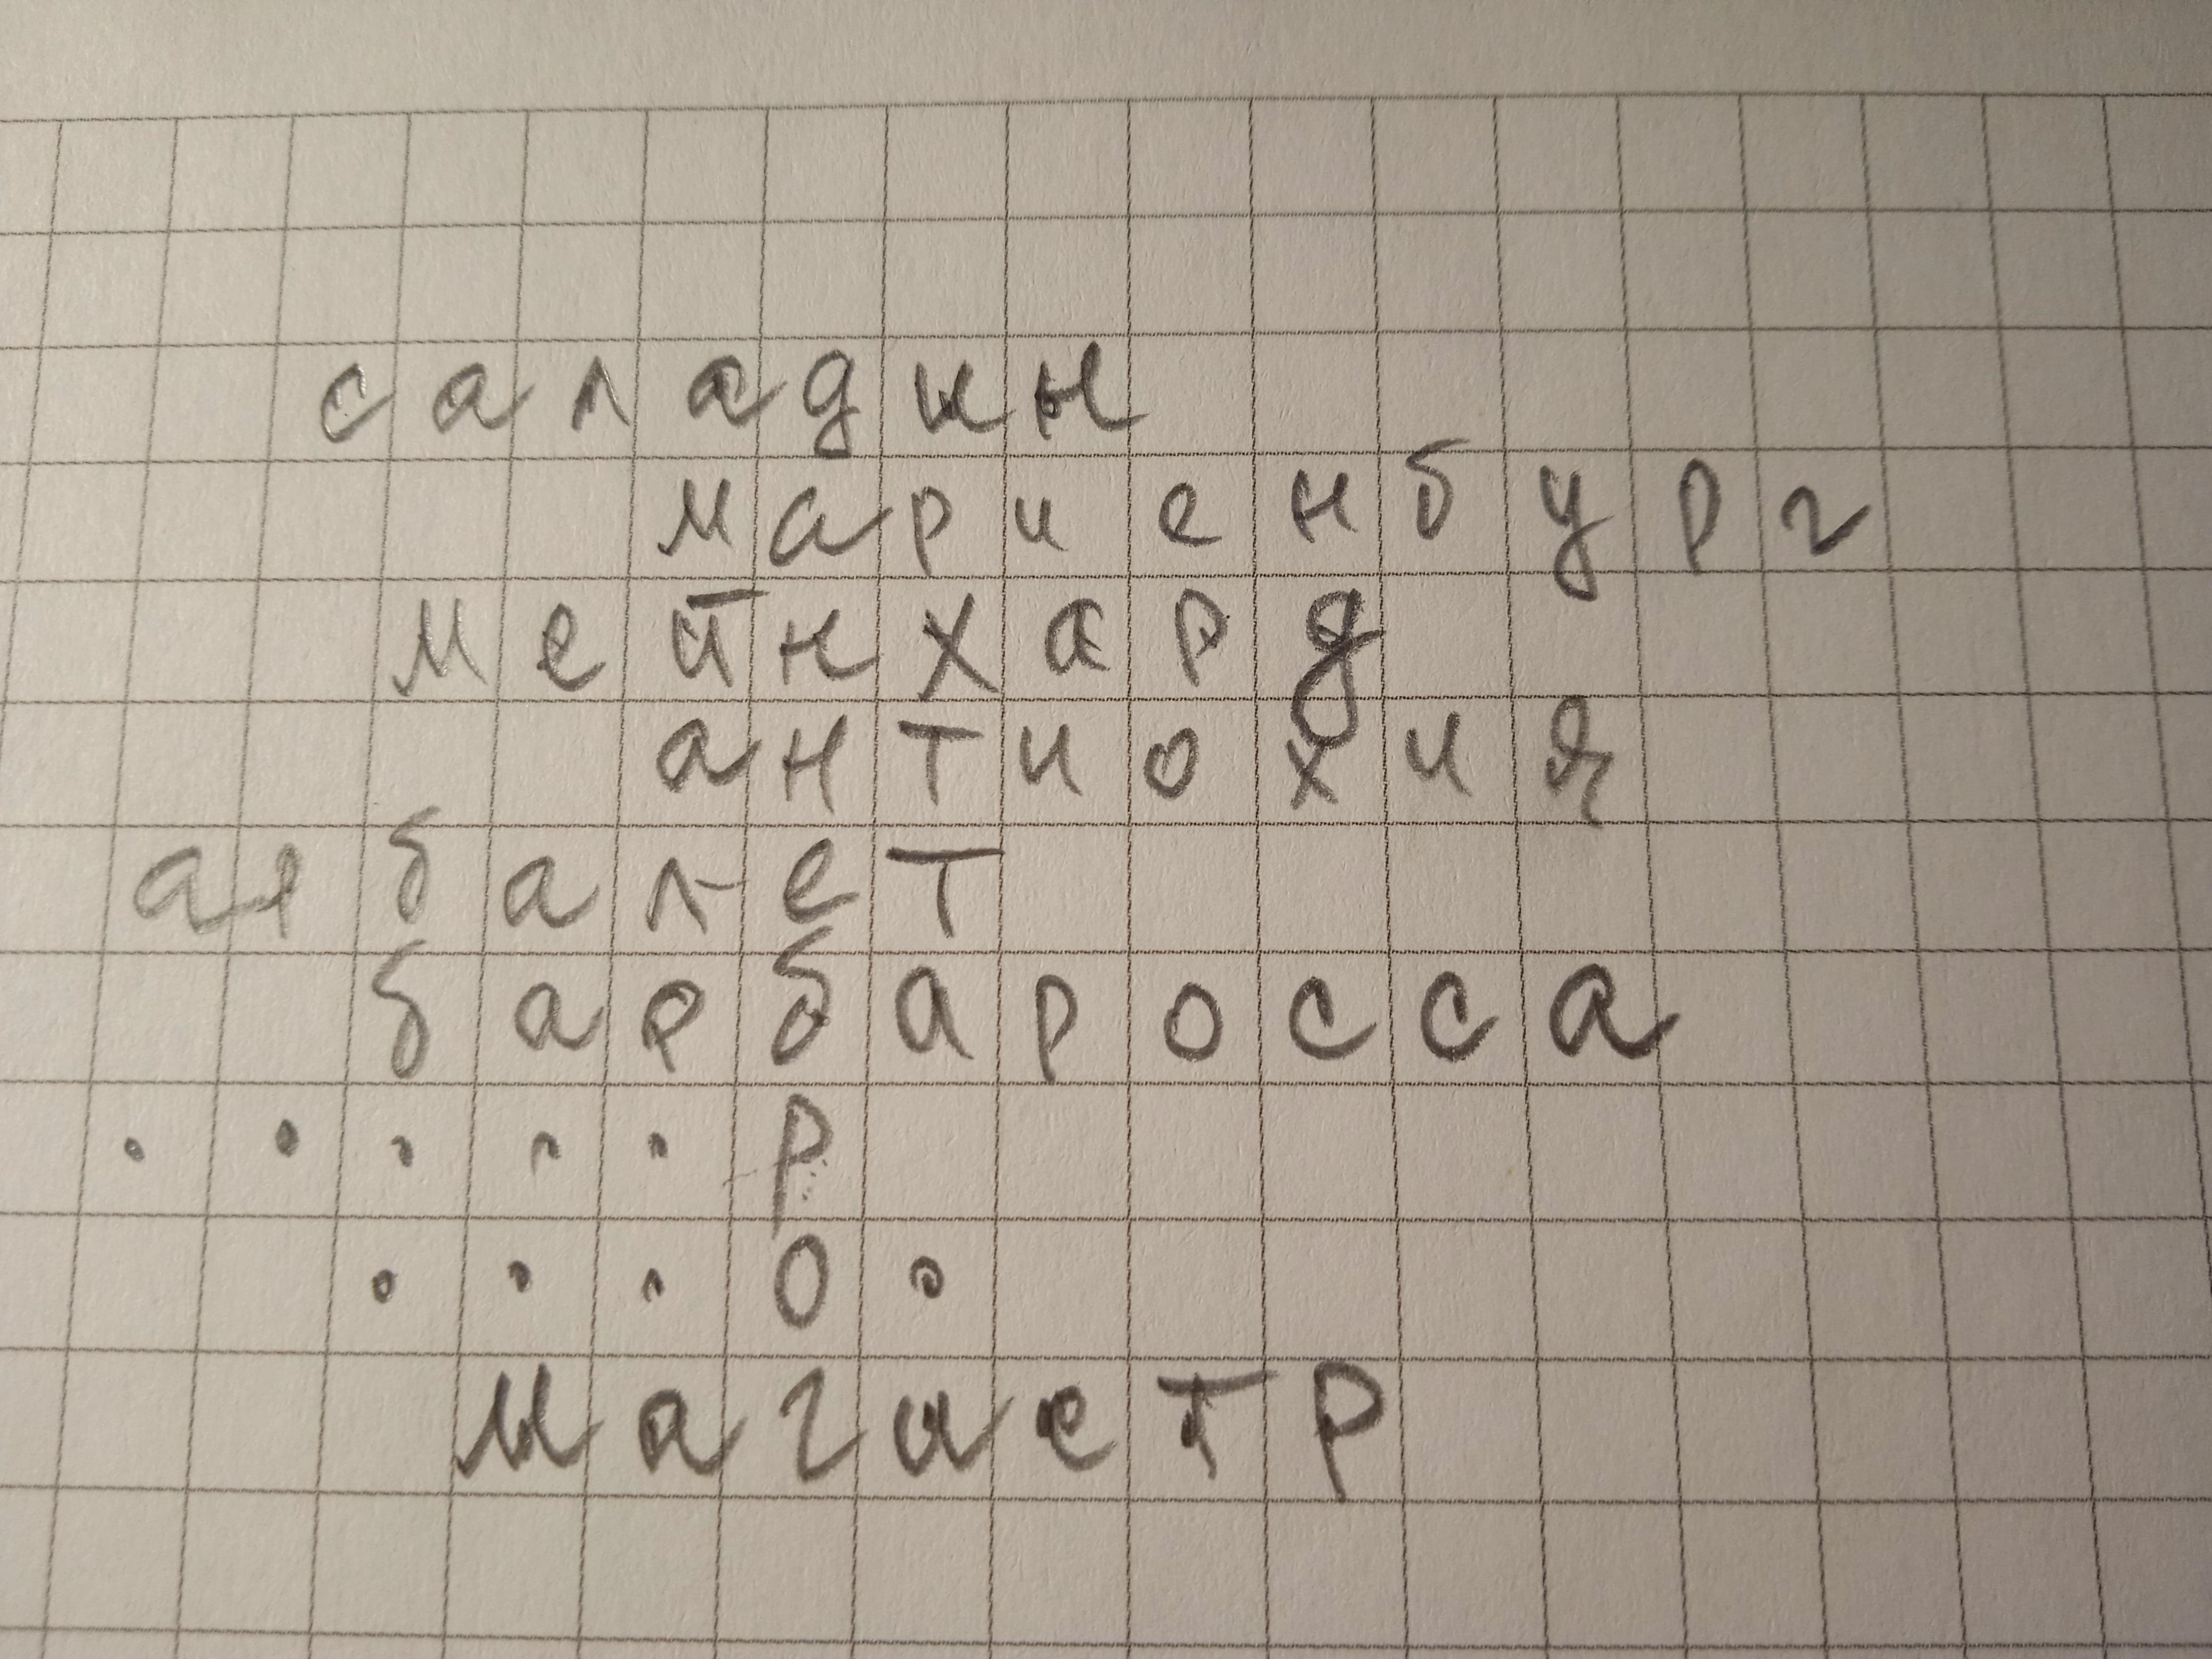 саладин
мариенбург
мейнхард
антиохия
арбалет
барбаросса
. . . . . р
. . . о .
магистр